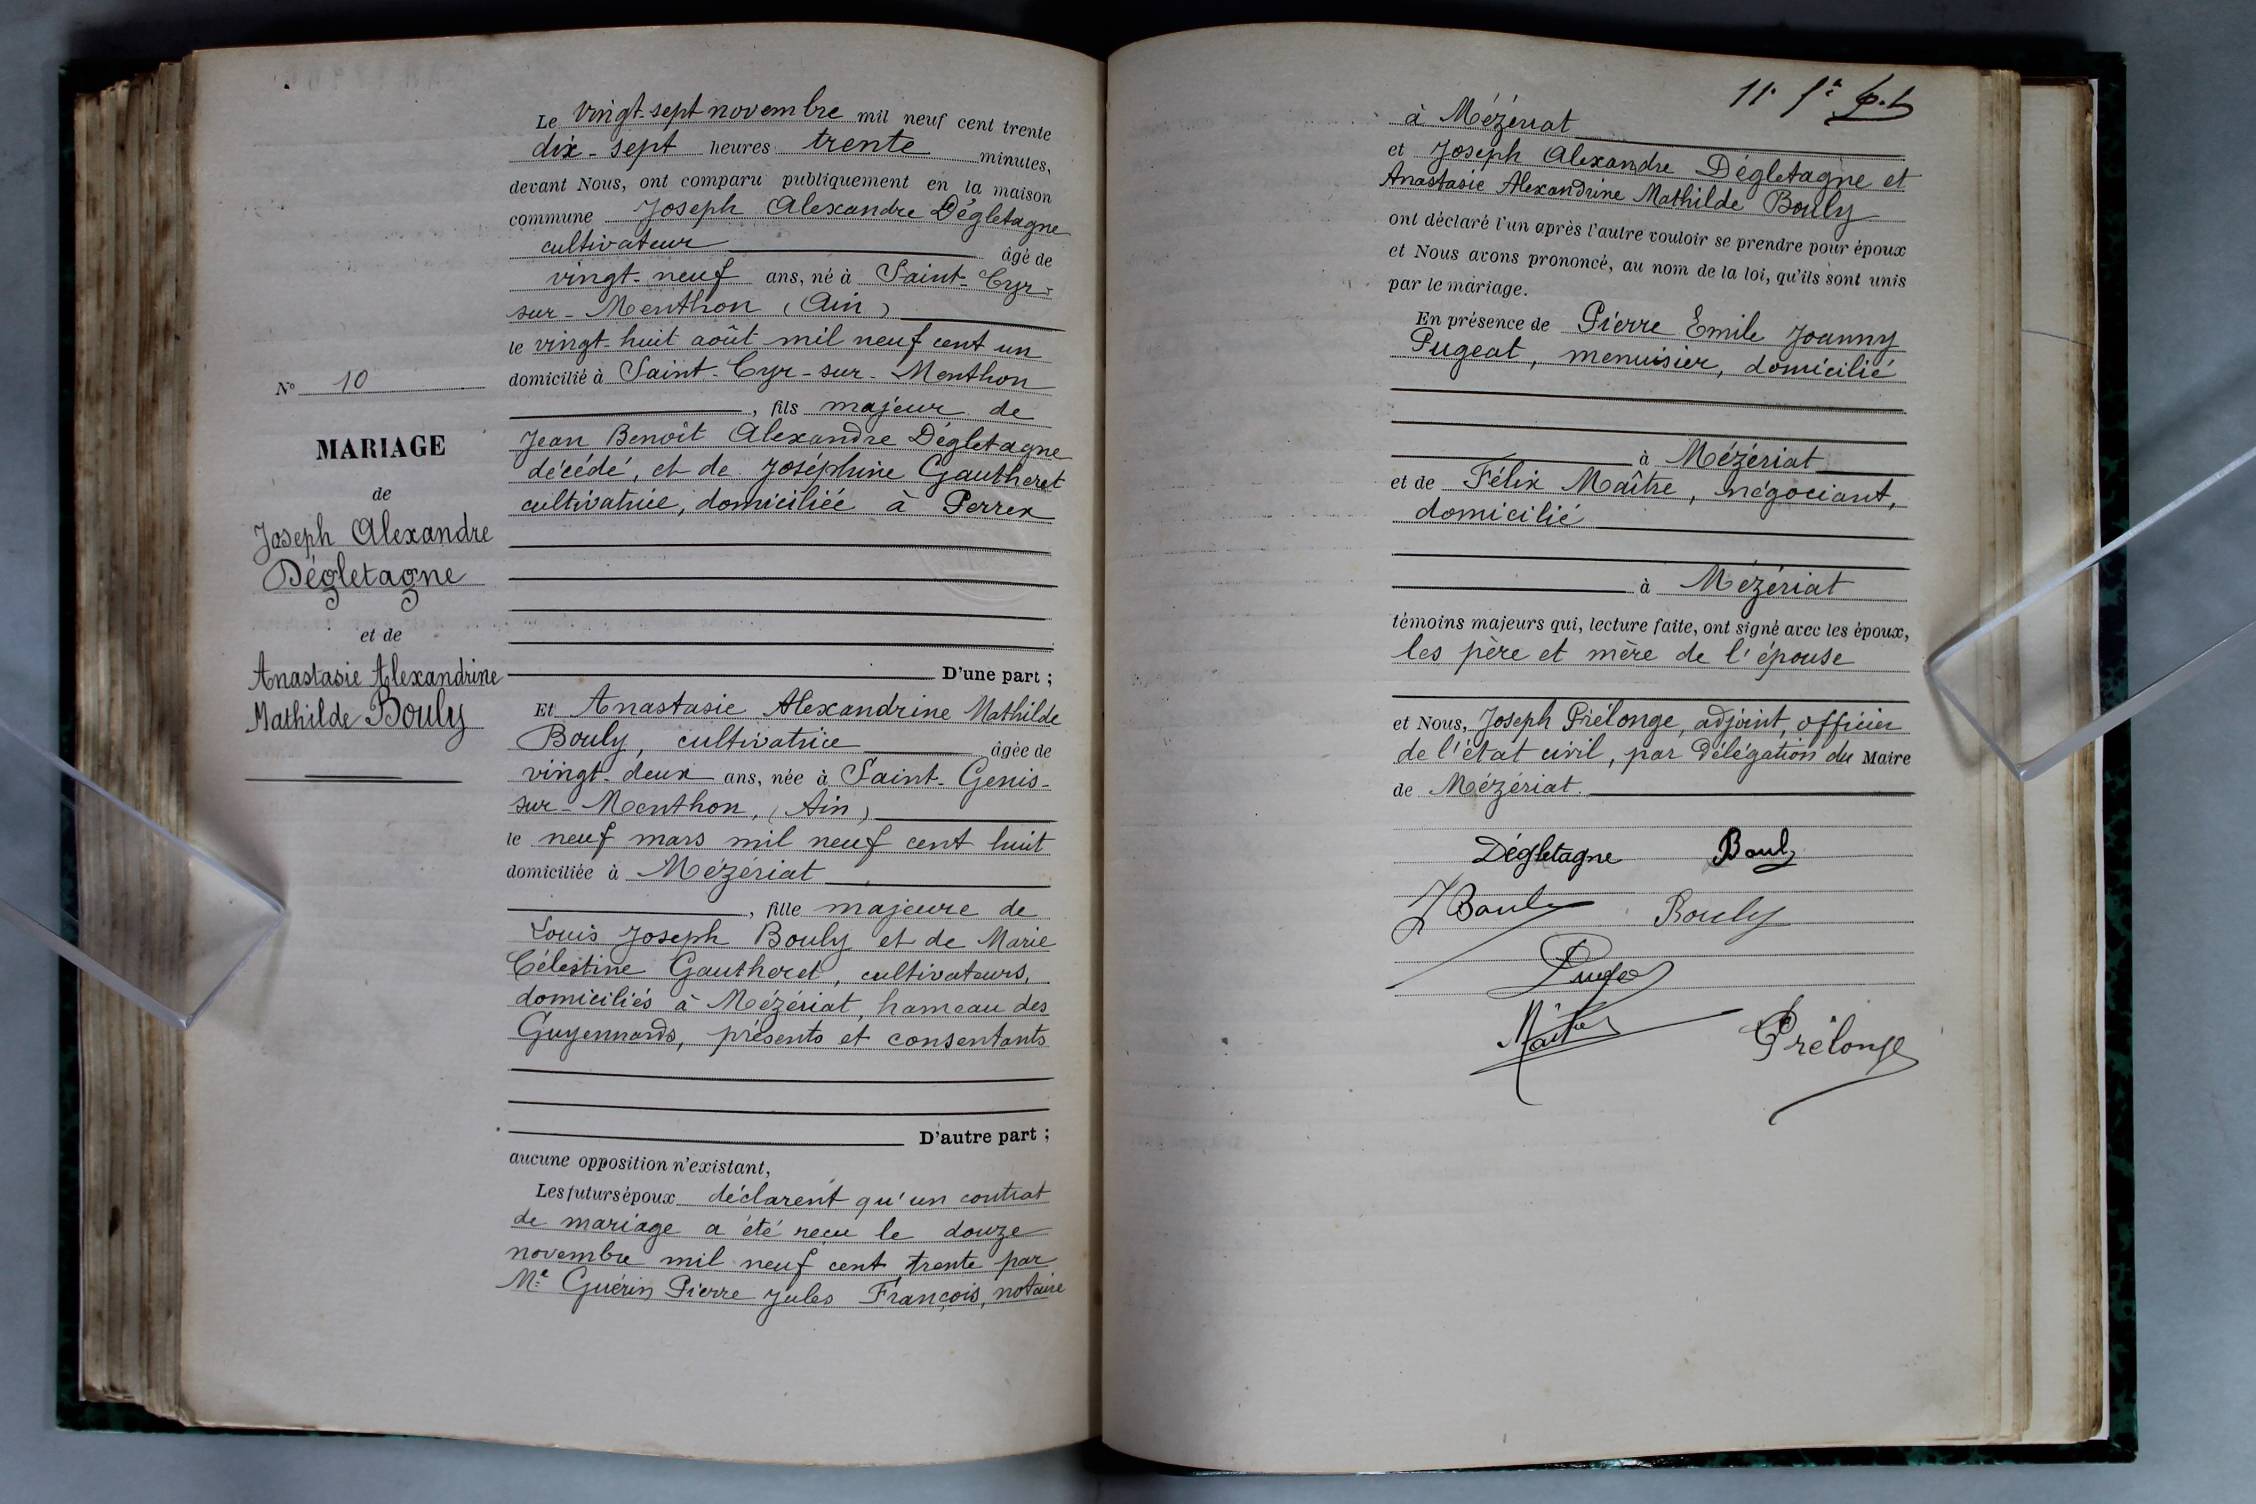 Le vingt-sept novembre mil neuf cent trente
dix-sept heures trente minutes,
devant Nous, ont comparu publiquement en la maison
commune Joseph Alexandre Dégletagne
cultivateur âgé de
vingt-neuf ans, né à Saint-Cyr-
sur-Menthon (Ain)
le vingt-huit août mil neuf cent un
domicilié à Saint-Cyr-sur-Menthon
, fils majeur de
Jean Benoît Alexandre Dégletagne
décédé, et de Joséphine Gautheret
cultivatrice, domiciliée à Perrex
D'une part ;
Et Anastasie Alexandrine Mathilde
Bouly, cultivatrice âgée de
vingt-deux ans, née à Saint-Genis-
sur-Menthon, (Ain)
le neuf mars mil neuf cent huit
domiciliée à Mézériat
, fille majeure de
Louis Joseph Bouly et de Marie
Célestine Gautheret, cultivateurs,
domiciliés à Mézériat, hameau des
Guyennards, présents et consentants
D'autre part ;
aucune opposition n'existant,
Les futurs époux déclarent qu'un contrat
de mariage a été reçu le douze
novembre mil neuf cent trente par
Me Guérin Pierre Jules François, notaire
N° 10
MARIAGE
de
Joseph Alexandre
Dégletagne
et de
Anastasie Alexandrine
Mathilde Bouly
11
à Mézériat
et Joseph Alexandre Dégletagne et
Anastasie Alexandrine Mathilde Bouly
ont déclaré l'un après l'autre vouloir se prendre pour époux
et Nous avons prononcé, au nom de la loi, qu'ils sont unis
par le mariage.
En présence de Pierre Emile Joanny
Pugeat, menuisier, domicilié
à Mézériat
et de Félix Maître, négociant,
domicilié
à Mézériat
témoins majeurs qui, lecture faite, ont signé avec les époux,
les père et mère de l'épouse
et Nous, Joseph Prélonge, adjoint, officier
de l'état civil, par délégation du Maire
de Mézériat.
Dégletagne Bouly
Bouly Bouly
Maître Prélonge